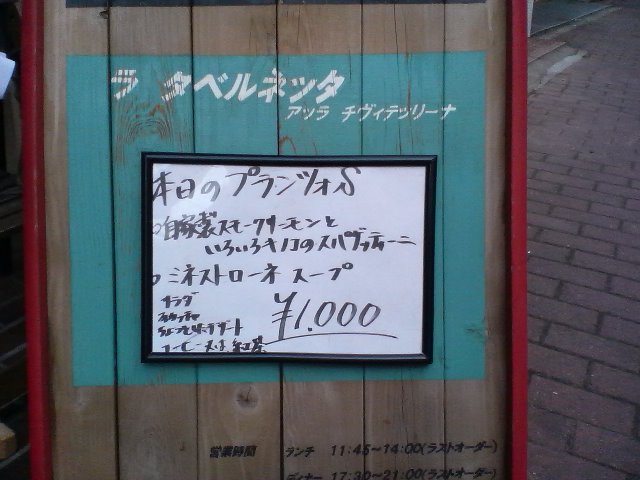 ラ タベルネッタ
アッラ チヴィテッリーナ
本日のプランツォS
自家製スモークサーモンと
いろいろキノコのスパゲッティーニ
ミネストローネ スープ
サラダ
フォカッチャ
ちょっとしたデザート
コーヒー又は紅茶
¥1,000
営業時間 ランチ 11:45~14:00(ラストオーダー)
ディナー 17:30~21:00(ラストオーダー)